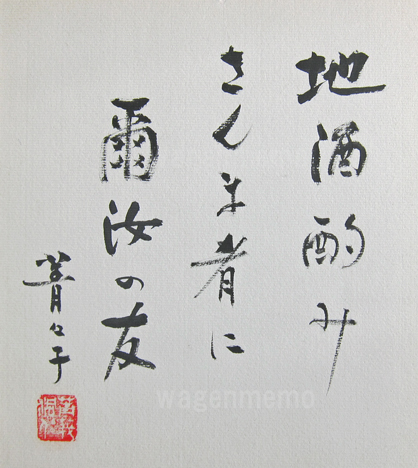 地酒酌み
さんま肴に
爾汝の友
菁々子
wagenmemo